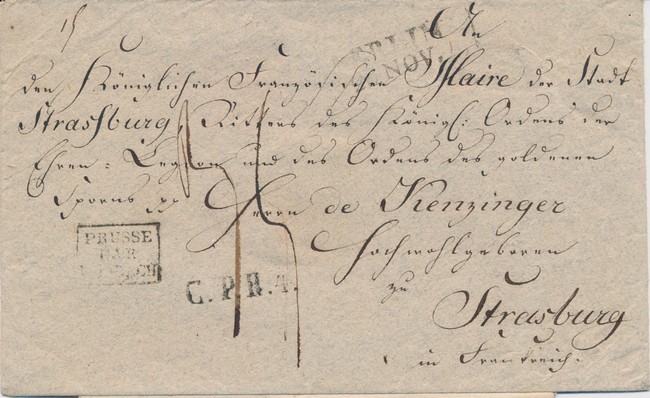 15
An
BERLIN
NOV.
den Königlichen Französischen Maire der Stadt
Strassburg, Ritters des Königl: Ordens der
Ehren-Legion und des Ordens des goldenen
Sporns pp Herrn de Kenzinger
Hochwohlgeboren
PRUSSE
PAR
C.P.R.4.
zu
Strasburg
in Frankreich.